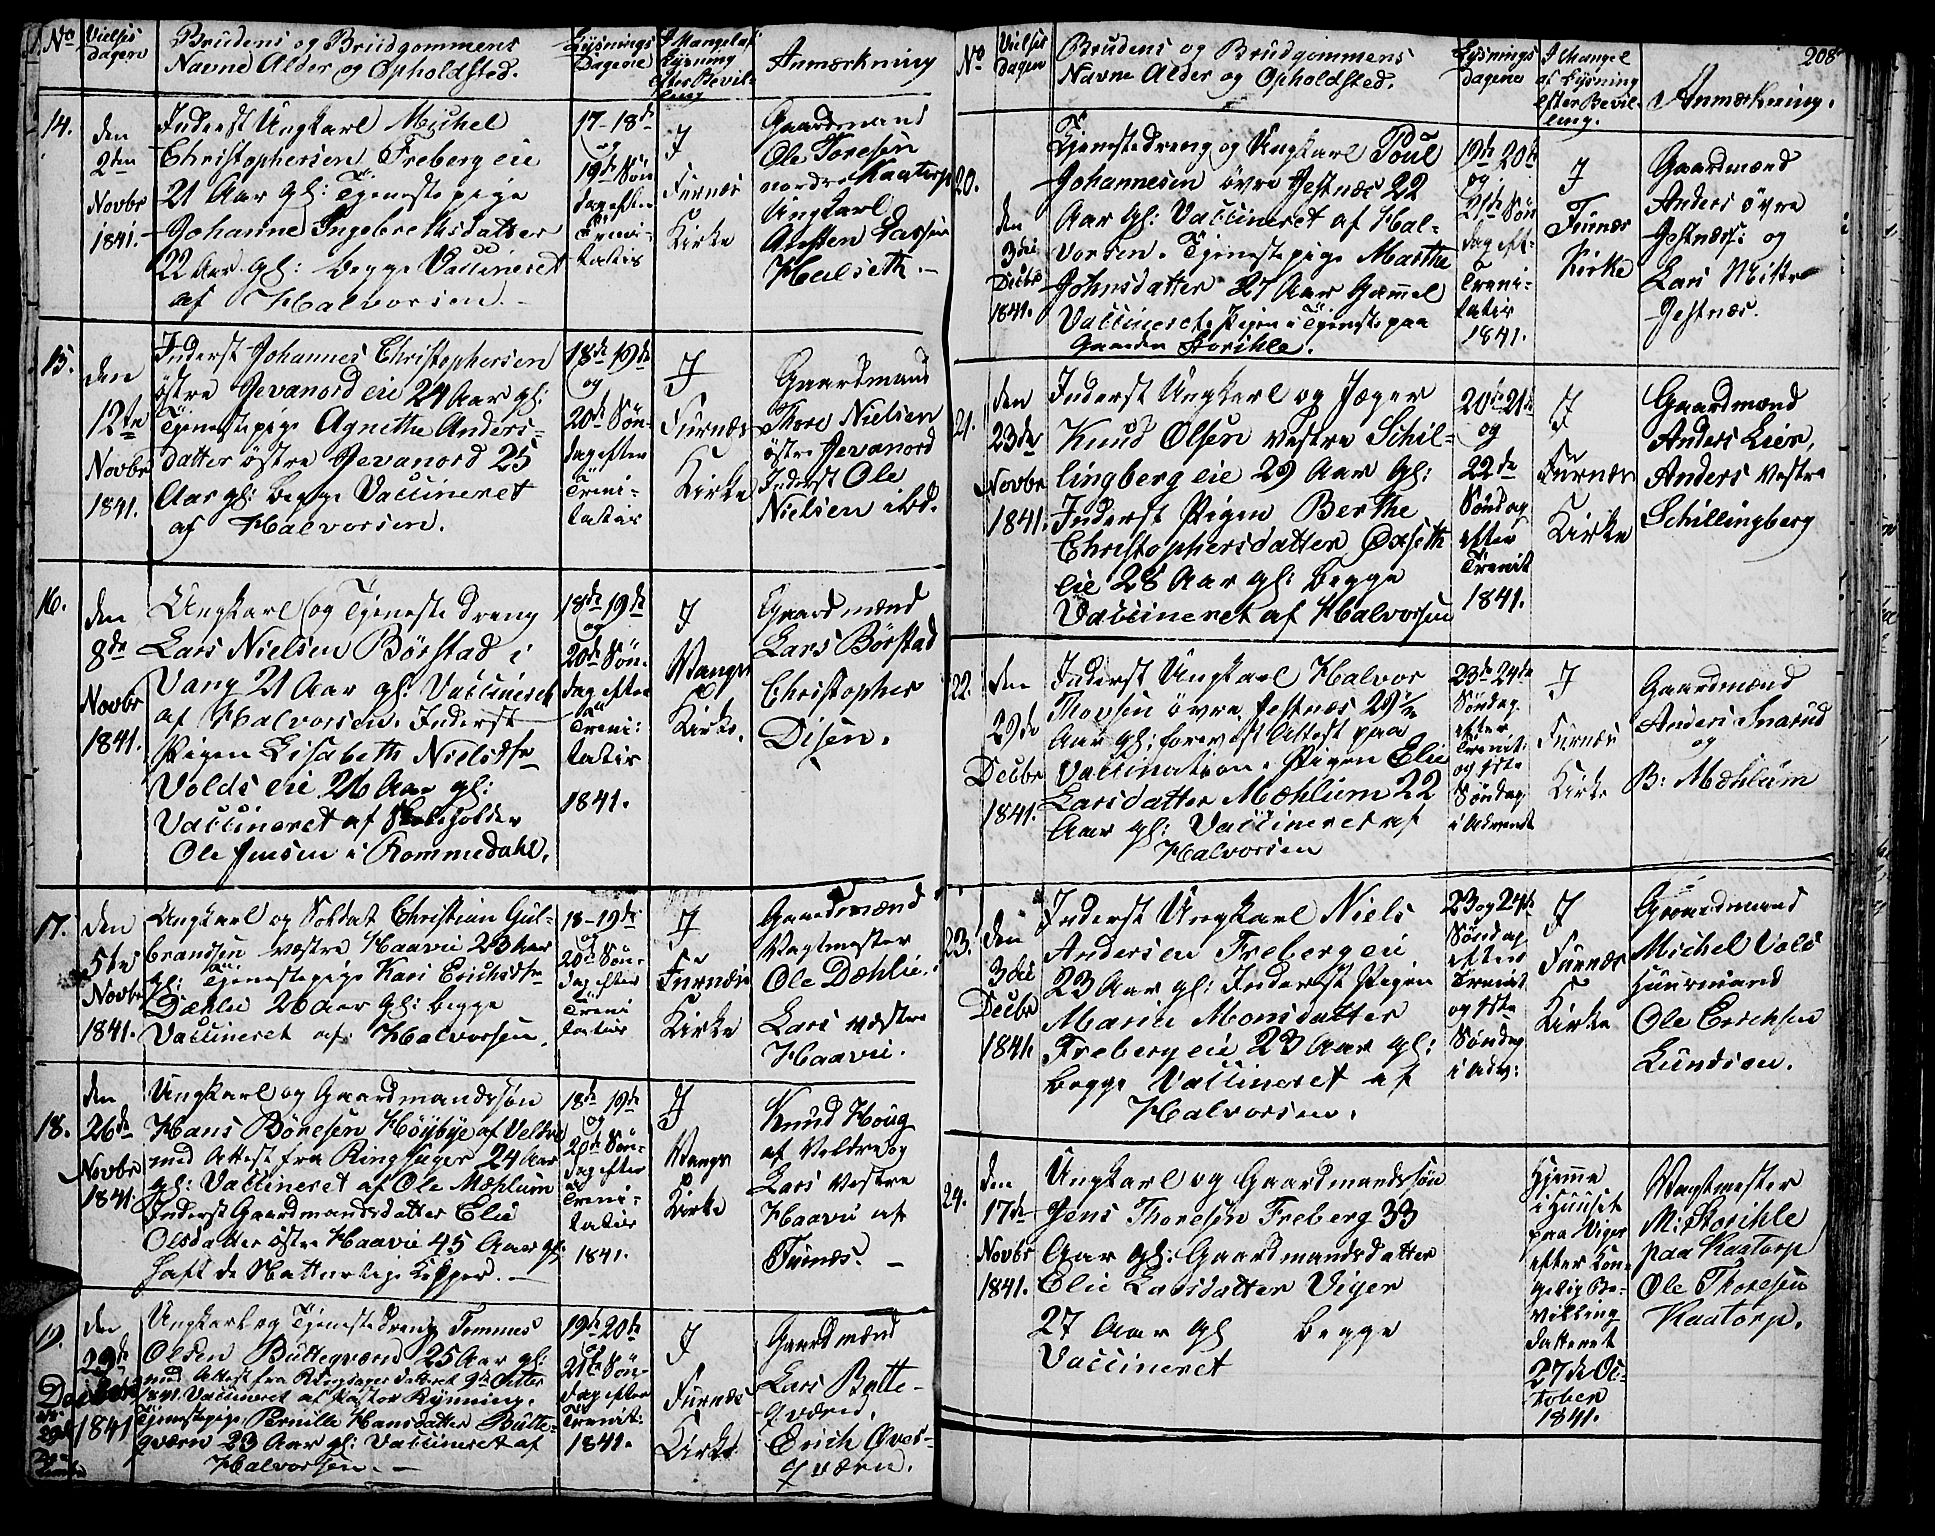 No
Vielses
dagene
Brudens og Brudgommens
Navne Alder og Opholdsted.
Lysnings
Dagene
I Mangel af
Lysning
Anmærkning
14.
den
2den
Novbr
1841.
Inderst Ungkarl Michel
Christophersen Freberg eie
21 Aar gl: Tjenestepige
Johanne Ingebrethsdatter
22 Aar gl: begge Vaccineret
af Halvorsen.
17-18de
og
19de Søn
dag efter
Treni-
tatis
I
Furnæs
Kirke
Gaardmænd
Ole Toresen
nordre Kaatorp
Ungkarl
Austen Larsen
Hulseth.
15.
den
12te
Novbr
1841.
Inderst Johannes Christophersen
østre Jevanord eie 24 Aar gl:
Tjenestepige Agnethe Anders-
datter østre Jevanord 25
Aar gl: begge Vaccineret
af Halvorsen.
18de 19de
og
20de Søn-
dag efter
Treni-
tatis
I
Furnæs
Kirke
Gaardmand
Thore Nielsen
østre Jevanord
Inderst Ole
Nielsen ibd.
16.
den
8de
Novbr
1841.
Ungkarl og Tjenestedreng
Lars Nielsen Børstad i
Vang 21 Aar gl: Vaccineret
af Halvorsen. Inderst
Pigen Lisabeth Nielsdtr
Volds eie 26 Aar gl:
Vaccineret af Skoleholder
Ole Jensen i Rommedahl.
18de 19de
og
20de Søn-
dag efter
Treni-
tatis
1841.
I
Vangs
Kirke.
Gaardmænd
Lars Børstad
Christopher
Disen.
17.
den
5te
Novbr
1841.
Ungkarl og Soldat Christian Gul-
brandsen vestre Haavie 23 Aar
gl: Tjenestepige Kari Erichsdtr
Dæhlie 26 Aar gl: begge
Vaccineret af Halvorsen.
18-19de
og
20de Søn-
dag efter
Treni
tatis
I
Furnæs
Kirke
Gaardmænd
Vagtmester
Ole Dæhlie.
Lars vestre
Haavie.
18.
den
26de
Novbr
1841.
Ungkarl og Gaardmandssøn
Hans Børesen Høybye af Veldre
med Attest fra Ringsager 24 Aar
gl: Vaccineret af Ole Mæhlum
Inderst Gaardmandsdatter Elie
Olsdatter østre Haavie 45 Aar gl:
haft de Natturlige Kopper.
18de 19de
og
20de Søn-
dag efter
Treni-
tatis
1841.
I
Vangs
Kirke
Knud Houg
af Veldre og
Lars Vestre
Haavie af
Furnæs.
19.
den
29de
1841
Ungkarl og Tjenestedreng Tommes
Olsen Buttegværn 25 Aar gl:
med Attest fra Ringsager datteret 9de
1841. Vaccineret af Pastor Rynning.
Tjenestepige Pernille Hansdatter Butte-
gværn 23 Aar gl: Vaccineret af
Halvorsen.
19de 20de
og
21de Søn-
dag efter
Trenit:
1841.
I
Furnæs
Kirke
Gaardmænd
Lars Butte-
gværn.
Erich Øver-
gværn.
208
No
Vielses
dagen
Brudens og Brudgommens
Navne Alder og Opholdsted.
Lysnings
dagene
I Mangel
af Lysning
efter Bevil-
ling.
Anmærkning.
20.
den
3die
Decbr
1841.
Tjenestedreng og Ungkarl Poul
Johannesen øvre Jestnæs 22
Aar gl: Vaccineret af Hal-
vorsen. Tjenestepige Marthe
Johnsdatter 27 Aar Gammel
Vaccineret. Pigen i Tjeneste paa
Gaarden Storihle.
19de 20de
og
21de Søn
dag eft-
Treni-
tatis
1841.
I
Furnæs
Kirke
Gaardmænd
Anders øvre
Jestnæs og
Lars Mittre
Jestnæs.
21.
den
23de
Novbr
1841.
Inderst Ungkarl og Jæger
Knud Olsen vestre Schil-
lingberg eie 29 Aar gl:
Inderst Pigen Berthe
Christophersdatter Oxseth
eie 28 Aar gl: begge
Vaccineret af Halvorsen
20de 21de
og
22de
Søndag
efter
Trenit
1841.
I
Furnæs
Kirke
Gaardmænd
Anders Lier,
Anders Vestre
Schillingberg
22.
den
29de
Decbr
1841.
Inderst Ungkarl Halvor
Thorsen øvre Jestnæs 29½
Aar gl: forevist Attest paa
Vaccination. Pigen Elie
Larsdatter Mæhlum 22
Aar gl: Vaccineret af
Halvorsen
23de 24de
Søndag
efter
Trenit:
og 1ste
Søndag
i Advendt
I
Furnæs
Kirke
Gaardmænd
Anders Snarud
og
B: Mæhlum
23.
den
3die
Decbr
1841.
Inderst Ungkarl Niels
Andersen Freberg eie
23 Aar gl: Inderst Pigen
Marie Monsdatter
Freberg eie 23 Aar gl:
begge Vaccineret af
Halvorsen.
23 og 24de
Søndag
efter
Trenit
og 1ste
Søndag
i Adv:
I
Furnæs
Kirke
Gaardmand
Michel Vold
Huusmand
Ole Erichsen
Lundsen.
24.
den
17de
Novbr
1841.
Ungkarl og Gaardmandssøn
Jens Thoresen Freberg 33
Aar gl: Gaardmandsdatter
Elie Larsdatter Viger
27 Aar gl begge
Vaccineret
Hjemme
i Huuset
paa Viger
efter Kon-
gelig Be-
villing
datteret
27de Oc-
tober
1841.
Vagtmester
M: Storihle
paa Kaatorp
Ole Thoresen
Kaatorp.